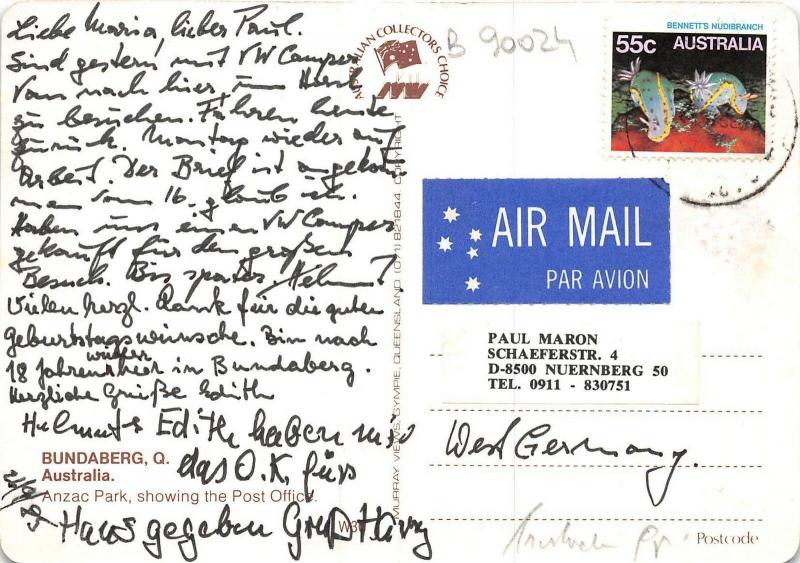 Liebe Maria, lieber Paul.
Sind gestern mit VW Camper
Van nach hier, um Horst
zu besuchen. Fahren heute
zurück. Montag wieder auf
Arbeit. Der Brief ist angekom
men vom 16. glaub ich.
Haben uns einen VW Camper
gekauft für den großen
Besuch. Bis später Helmut
Vielen herzl. Dank für die guten
Geburtstagswünsche. Bin nach
18 Jahren wieder hier in Bundaberg.
Herzliche Grüße Edith
Helmut & Edith haben mir
das O.K. fürs
Haus gegeben Gruß
BUNDABERG, Q.
Australia.
Anzac Park, showing the Post Office.
AUSTRALIAN COLLECTORS CHOICE
MV
MURRAY VIEWS, GYMPIE, QUEENSLAND (071) 821844 COPYRIGHT
W3
B 90024
BENNETT'S NUDIBRANCH
55c AUSTRALIA
AIR MAIL
PAR AVION
PAUL MARON
SCHAEFERSTR. 4
D-8500 NUERNBERG 50
TEL. 0911 - 830751
West Germany.
Postcode